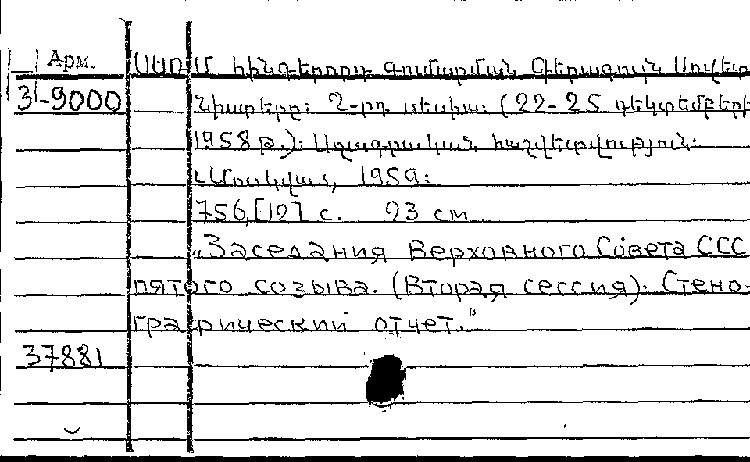 Арм. ՍՍՌՄ հինգերորդ գումարման Գերագույն Սովետ
3-9000 նիստերը։ 2-րդ սեսիա։ (22-25 դեկտեմբերի
1958 թ.)։ Սղագրական հաշվետվություն։
Մոսկվա, 1959։
756, [12] с. 23 см
„Заседания Верховного Совета ССС
пятого созыва. (Вторая сессия). Стено-
графический отчет."
37881